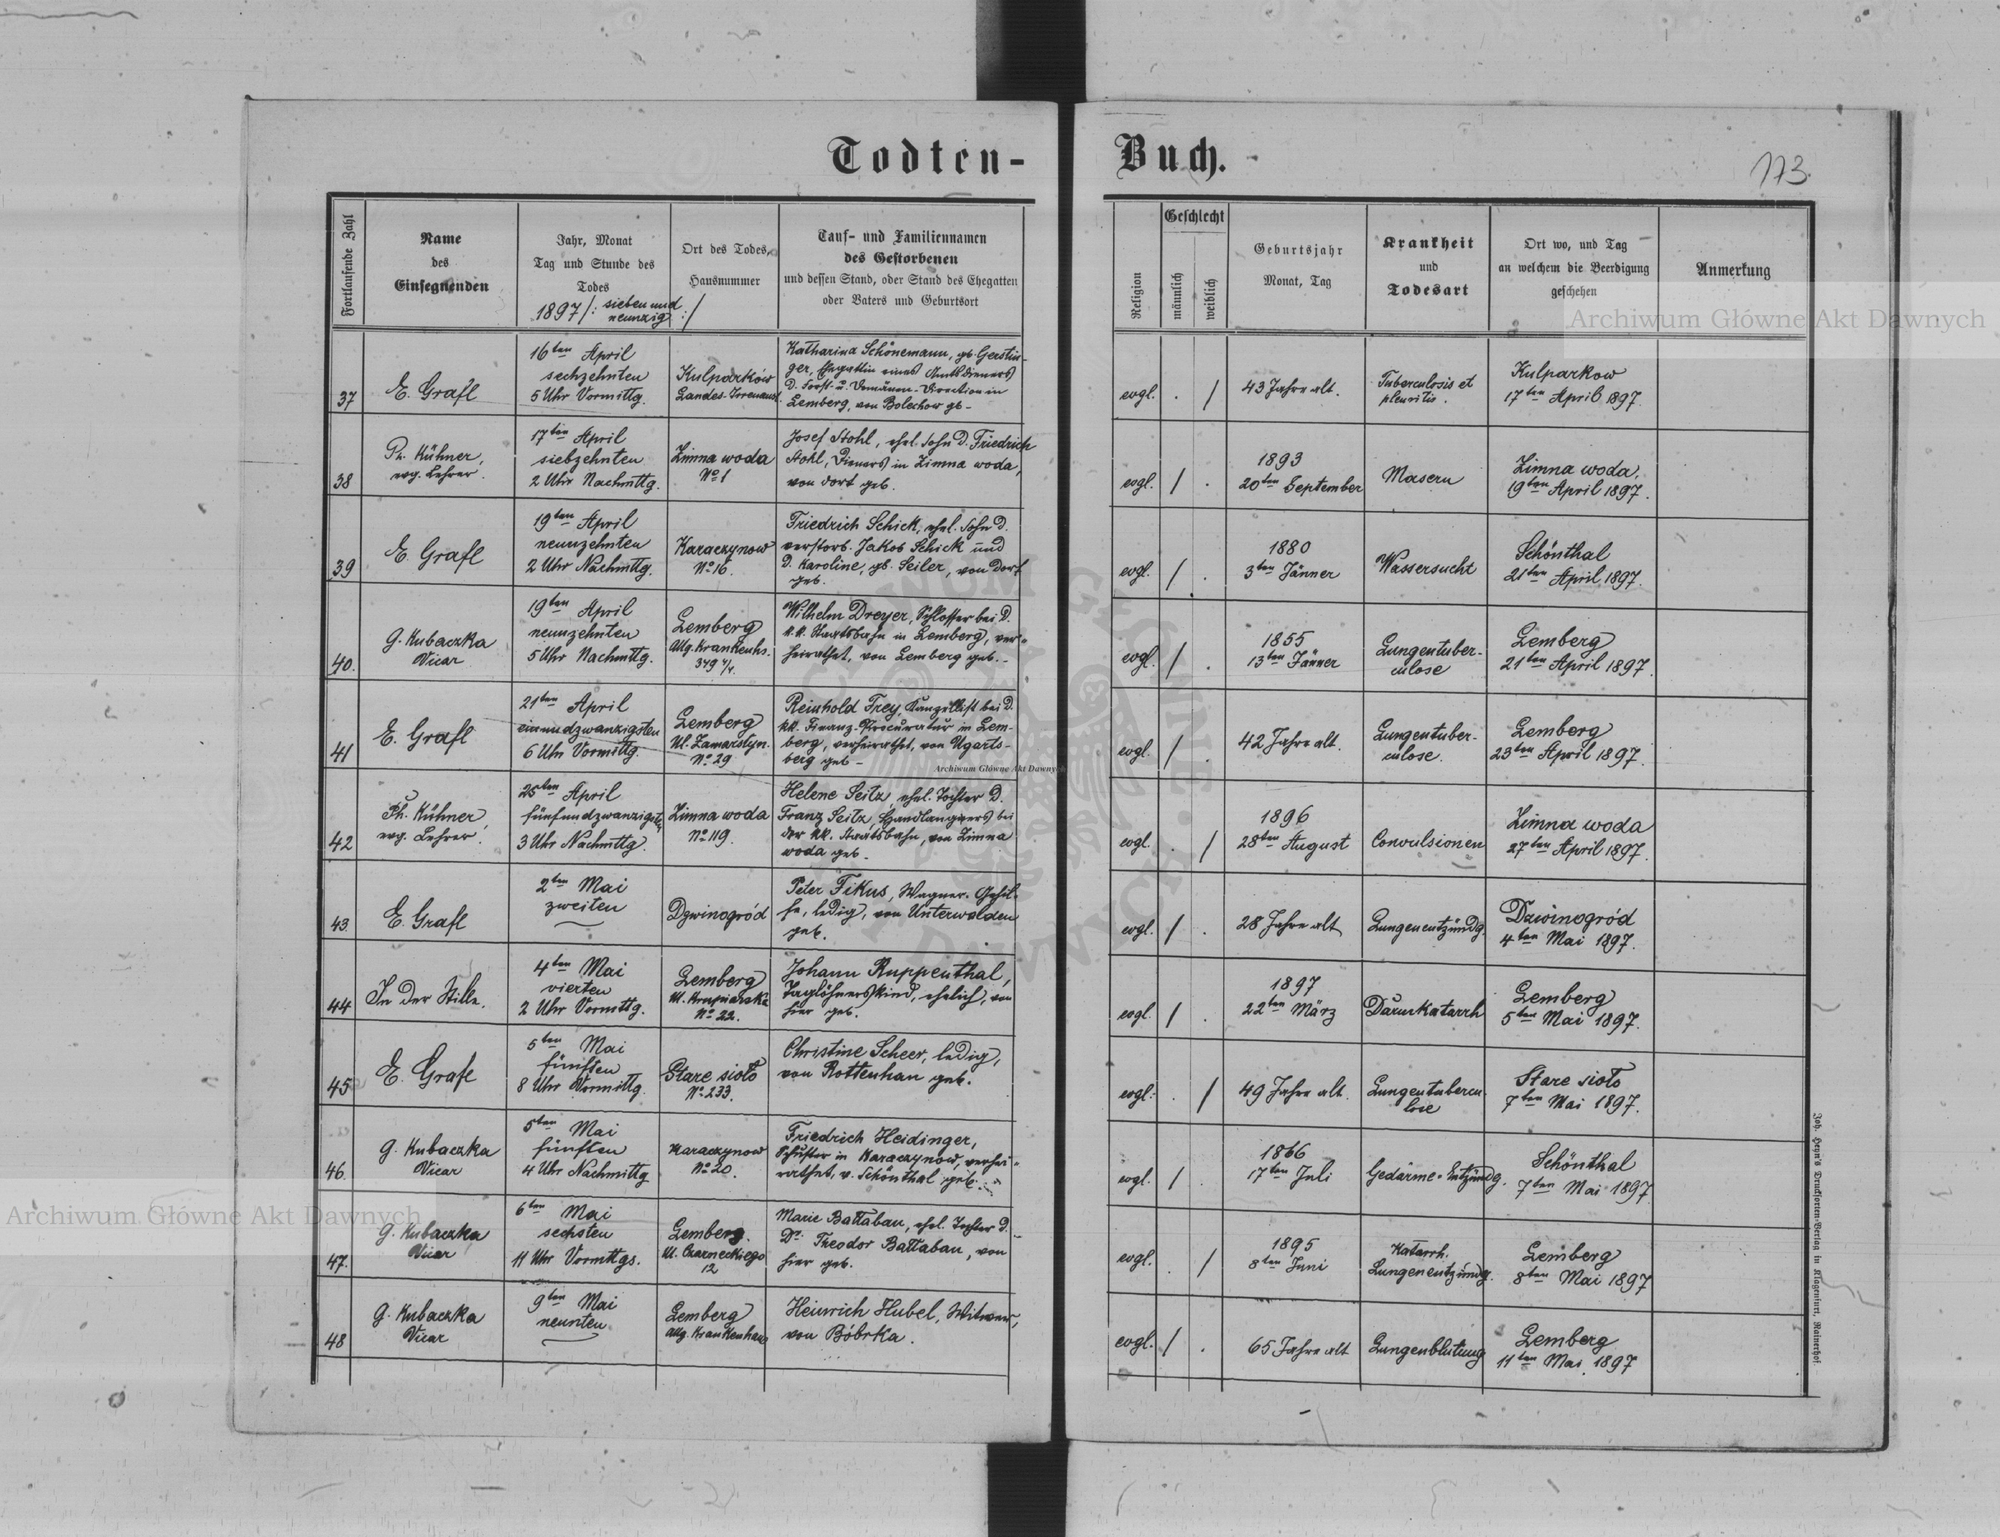 Todten-
Buch.
173.
Fortlaufende Zahl
Name
des
Einsegnenden
Jahr, Monat
Tag und Stunde des
Todes
1897 /: sieben und
neunzig :/
Ort des Todes,
Hausnummer
Tauf- und Familiennamen
des Gestorbenen
und dessen Stand, oder Stand des Ehegatten
oder Vaters und Geburtsort
Religion
Geschlecht
männlich
weiblich
Geburtsjahr
Monat, Tag
Krankheit
und
Todesart
Ort wo, und Tag
an welchem die Beerdigung
geschehen
Anmerkung
37
E. Grafl
16ten April
sechzehnten
5 Uhr Vormittg.
Kulparków
Landes-Irrenanst.
Katharina Schönemann, gb. Gerstin-
ger, Ehegattin eines Amtsdieners
d. Forst- u. Domänen-Direction in
Lemberg, von Bolechow gb-
evgl. . /
43 Jahre alt.
Tuberculosis et
pleuritis.
Kulparkow
17ten April 1897.
38
Ph. Kühner,
evg. Lehrer.
17ten April
siebzehnten
2 Uhr Nachmttg.
Zimna woda
No 1
Josef Stohl, ehel. Sohn d. Friedrich
Stohl, Dieners in Zimna woda,
von dort geb.
evgl. / .
1893
20ten September
Masern
Zimna woda,
19ten April 1897.
39
E. Grafl
19ten April
neunzehnten
2 Uhr Nachmttg.
Karaczynow
No 16.
Friedrich Schick, ehel. Sohn d.
verstorb. Jakob Schick und
d. Karoline, gb. Seiler, von dort
geb.
evgl. / .
1880
3ten Jänner
Wassersucht
Schönthal
21ten April 1897.
40.
G. Kubaczka
Vicar
19ten April
neunzehnten
5 Uhr Nachmttg.
Lemberg
Allg. Krankenhs.
349 1/4.
Wilhelm Dreyer, Schlosser bei d.
k.k. Staatsbahn in Lemberg, ver-
heirathet, von Lemberg geb.-
evgl. / .
1855
13ten Jänner
Lungentuber-
culose
Lemberg
21ten April 1897.
41
E. Grafl
21ten April
einundzwanzigsten
6 Uhr Vormittg.
Lemberg
Ul. Zamarstyn.
No 29
Reinhold Frey, Kanzellist bei d.
kk. Finanz-Procuratur in Lem-
berg, verheirathet, von Ugarts-
berg geb-
evgl. / .
42 Jahre alt.
Lungentuber-
culose.
Lemberg
23ten April 1897.
42
Ph. Kühner,
evg. Lehrer.
25ten April
fünfundzwanzigsten
3 Uhr Nachmttg.
Zimna woda
No 119.
Helene Seitz, ehel. Tochter d.
Franz Seitz, Handlangers bei
der kk. Staatsbahn, von Zimna
woda geb-
evgl. . /
1896
28ten August
Convulsionen
Zimna woda
27ten April 1897.
43.
E. Grafl
2ten Mai
zweiten
Dzwinogród
Peter Fikus, Wagner-Gehil-
fe, ledig, von Unterwalden
geb.
evgl. / .
28 Jahre alt
Lungenentzündg.
Dzwinogród
4ten Mai 1897.
44
In der Stille.
4ten Mai
vierten
2 Uhr Vormttg.
Lemberg
Ul. Krupiarska
No 22.
Johann Ruppenthal,
Taglöhnerskind, ehelich, von
hier geb.
evgl. / .
1897
22ten März
Darmkatarrh
Lemberg
5ten Mai 1897.
45
E. Grafl
5ten Mai
fünften
8 Uhr Vormittg.
Stare sioło
No 233.
Christine Scheer, ledig,
von Rottenhan geb.
evgl. . /
49 Jahre alt.
Lungentubercu-
lose
Stare sioło
7ten Mai 1897.
46.
G. Kubaczka
Vicar
5ten Mai
fünften
4 Uhr Nachmittg
Karaczynow
No 20.
Friedrich Heidinger,
Schuster in Karaczynow, verhei-
rathet, v. Schönthal geb.
evgl. / .
1866
17ten Juli
Gedärme-Entzündg.
Schönthal
7ten Mai 1897
47.
G. Kubaczka
Vicar
6ten Mai
sechsten
11 Uhr Vormttgs.
Lemberg.
Ul. Czarneckiego
12
Marie Battaban, ehel. Tochter d.
Dr. Theodor Battaban, von
hier geb.
evgl. . /
1895
8ten Juni
Katarrh.
Lungenentzündg.
Lemberg
8ten Mai 1897
48
G. Kubaczka
Vicar
9ten Mai
neunten
Lemberg
Allg. Krankenhaus
Heinrich Hubel, Witwer,
von Bóbrka.
evgl. / .
65 Jahre alt
Lungenblutung
Lemberg
11ten Mai 1897
Joh. Heyn's Drucksorten-Verlag in Klagenfurt, Rainerhof.
Archiwum Główne Akt Dawnych
Archiwum Główne Akt Dawnych
Archiwum Główne Akt Dawnych